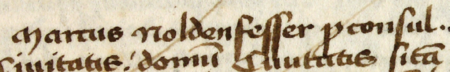 Marcus Noldenfesser pconsul.
Civitatis. domū Civitatis sitā